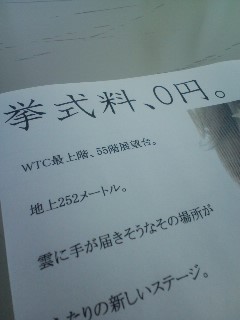 挙式料、0円。
WTC最上階、55階展望台。
地上252メートル。
雲に手が届きそうなその場所が
たりの新しいステージ。